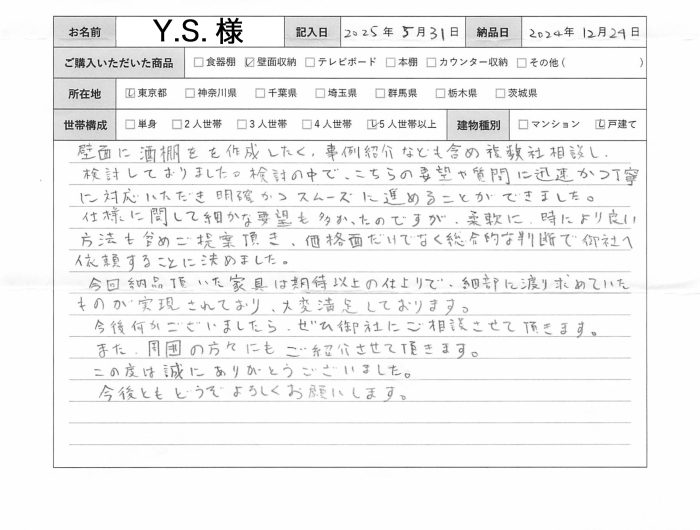 お名前 Y.S.様 記入日 2025年5月31日 納品日 2024年12月24日
ご購入いただいた商品 □食器棚 ☑壁面収納 □テレビボード □本棚 □カウンター収納 □その他( )
所在地 ☑東京都 □神奈川県 □千葉県 □埼玉県 □群馬県 □栃木県 □茨城県
世帯構成 □単身 □2人世帯 □3人世帯 □4人世帯 ☑5人世帯以上 建物種別 □マンション ☑戸建て
壁面に酒棚をを作成したく、事例紹介なども含め複数社相談し、
検討しておりました。検討の中で、こちらの要望や質問に迅速かつ丁寧
に対応いただき明確かつスムーズに進めることができました。
仕様に関して細かな要望も多かったのですが、柔軟に、時により良い
方法も含めご提案頂き、価格面だけでなく総合的な判断で御社へ
依頼することに決めました。
今回納品頂いた家具は期待以上の仕上りで、細部に渡り求めていた
ものが実現されており、大変満足しております。
今後何かございましたら、ぜひ御社にご相談させて頂きます。
また、周囲の方々にもご紹介させて頂きます。
この度は誠にありがとうございました。
今後ともどうぞよろしくお願いします。